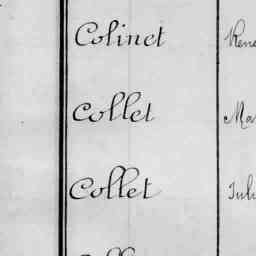 Colinet René
Collet Ma
Collet Juli